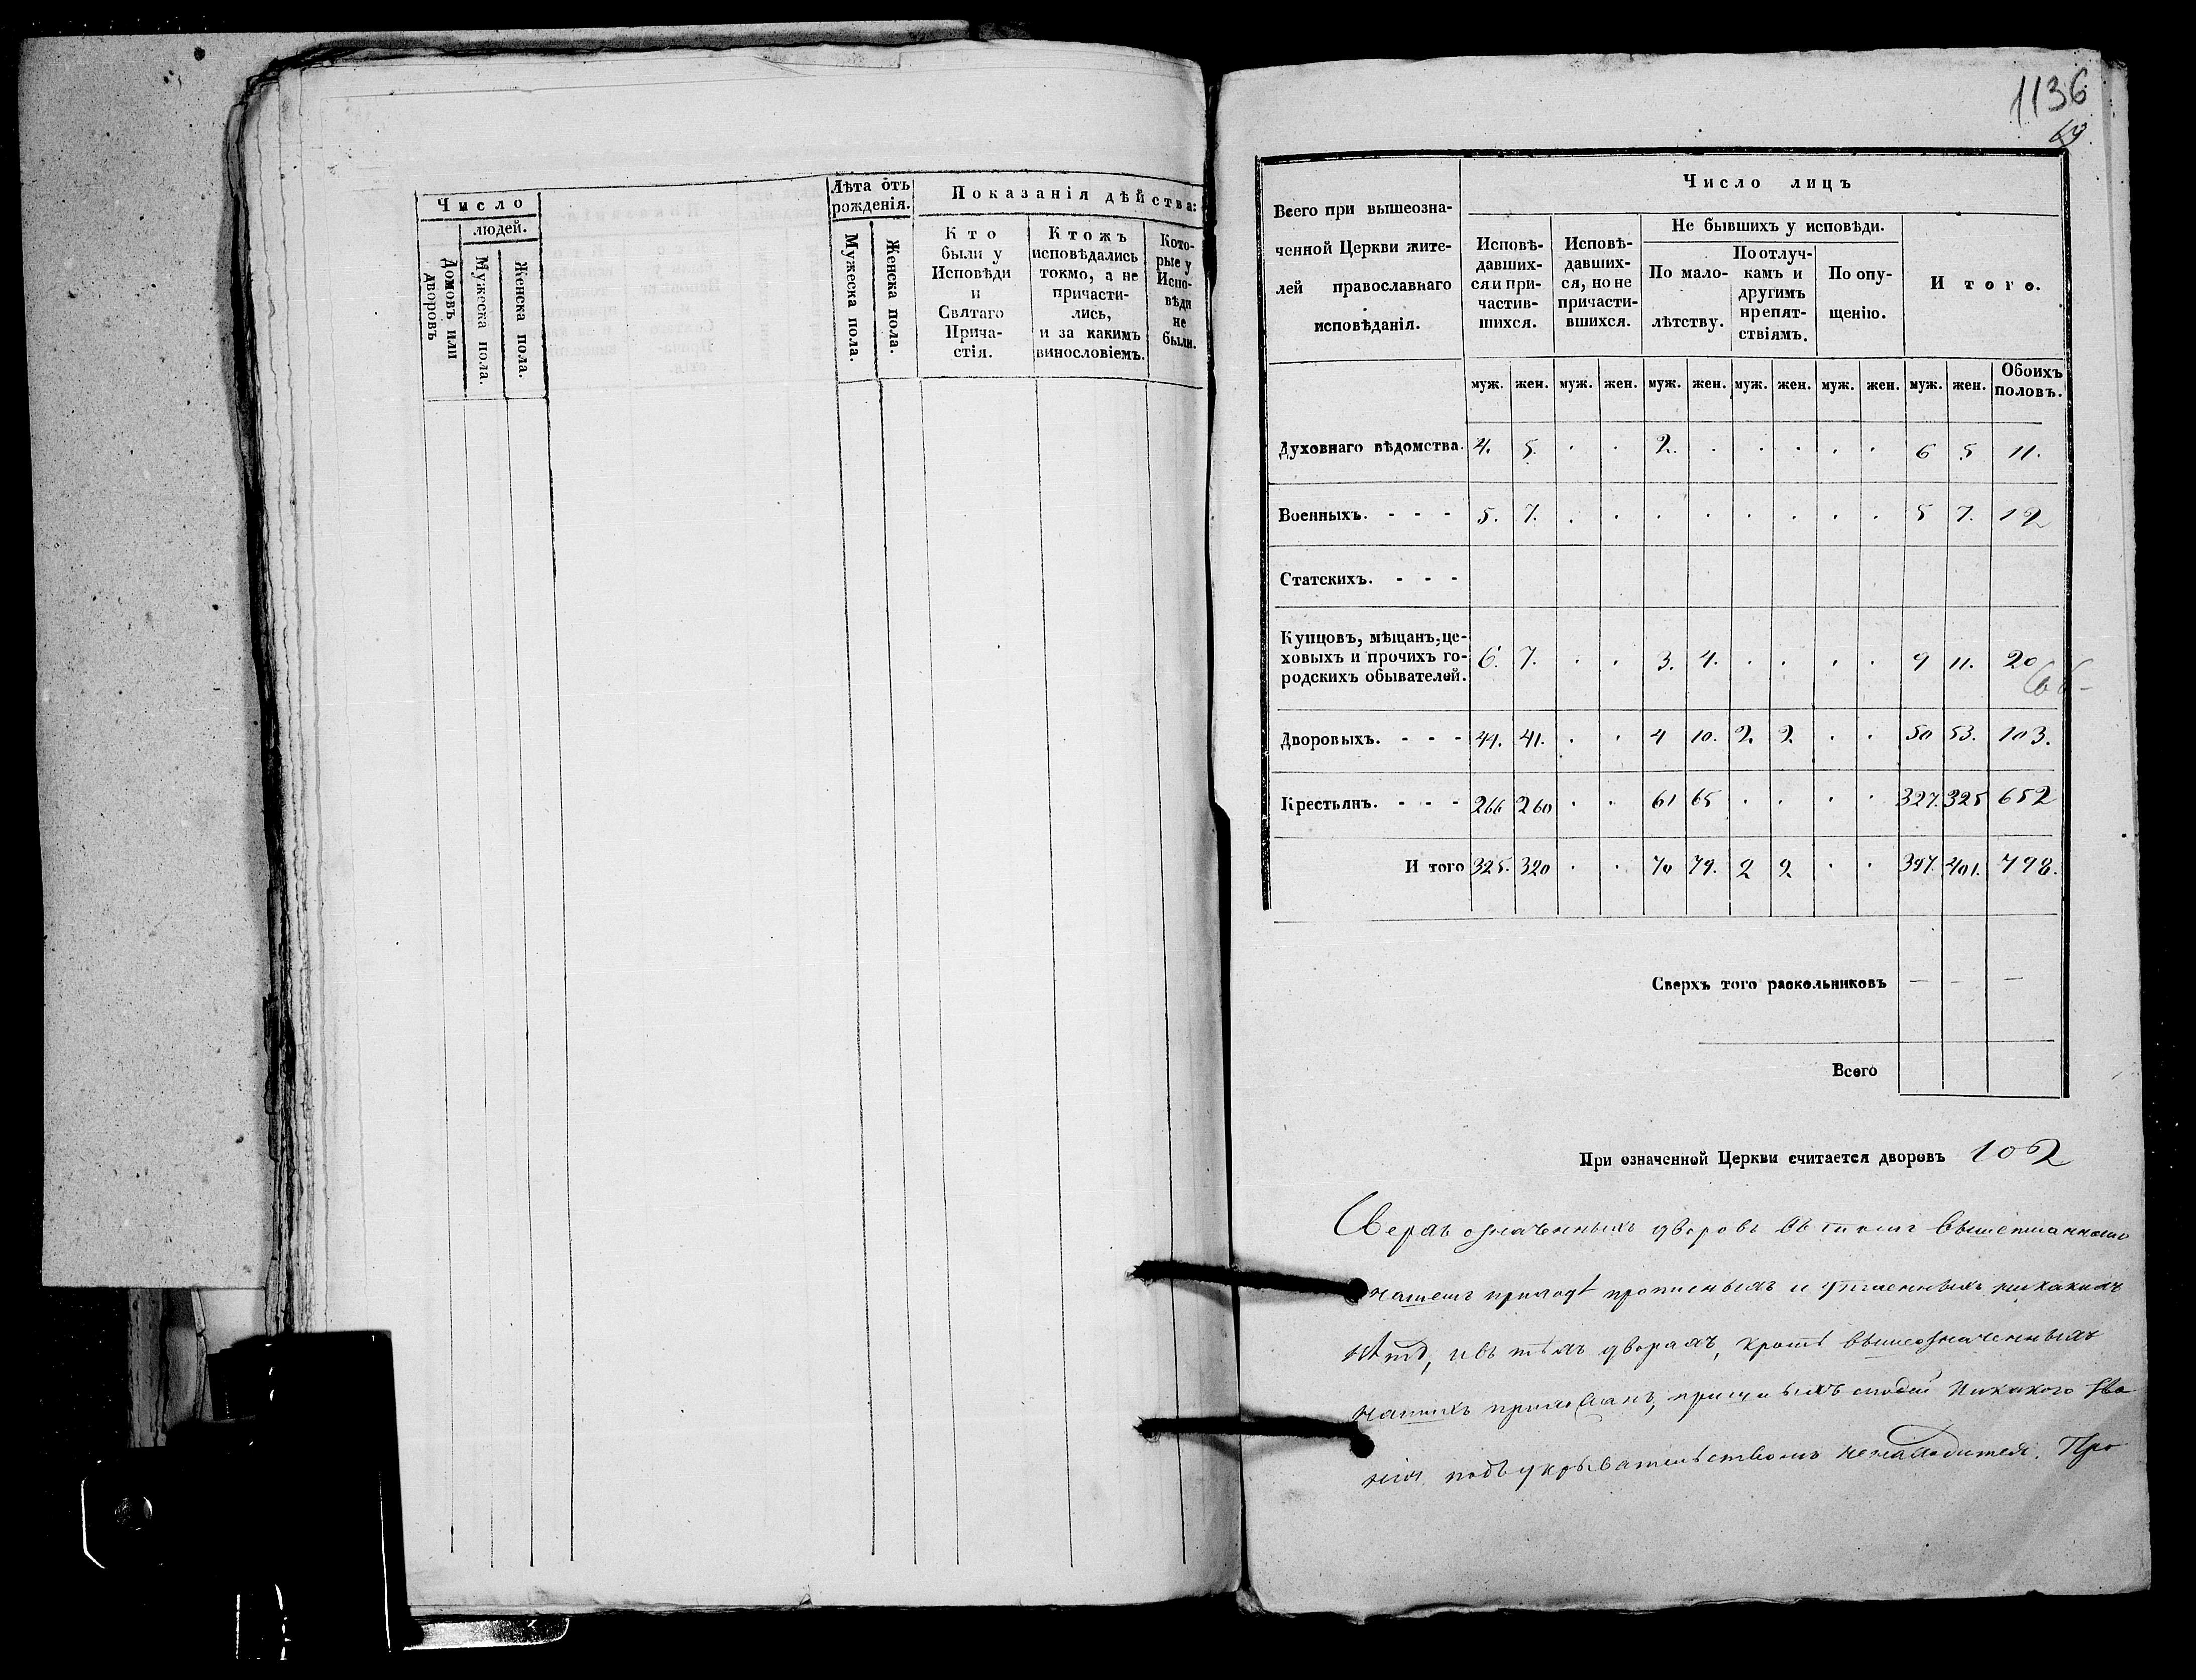 Число
людей.
Домовъ или дворовъ
Мужеска пола.
Женска пола.
Лѣта отъ рожденія.
Мужеска пола.
Женска пола.
Показанія дѣйства:
Кто были у Исповѣди и Святаго Прича-стія.
Ктожъ исповѣдались токмо, а не причасти-лись, и за какимъ винословіемъ.
Кото-рые у Испо-вѣди не были.
1136
69.
Всего при вышеозна-
ченной Церкви жите-
лей православнаго
исповѣданія.
Число лицъ
Исповѣ-давших-ся и при-частив-шихся.
Исповѣ-давших-ся, но не причасти-вшихся.
Не бывшихъ у исповѣди.
По мало-лѣтству.
По отлуч-камъ и другимъ препят-ствіямъ.
По опу-щенію.
И того.
муж. жен. муж. жен. муж. жен. муж. жен. муж. жен. муж. жен. Обоихъ половъ.
Духовнаго вѣдомства. 4. 5. . . 2. . . . . . 6 5 11.
Военныхъ. - - - 5. 7. . . . . . . . . 5 7. 12
Статскихъ. - - -
Купцовъ, мѣщанъ, це-
ховыхъ и прочихъ го-
родскихъ обывателей. 6. 7. . . 3. 4. . . . . 9 11. 20
66-
Дворовыхъ. - - - 44. 41. . . 4 10. 2. 2. . . 50 53. 103.
Крестьянъ. - - - 266 260 . . 61 65 . . . . 327. 325 652
И того 325. 320 . . 70 79. 2 2. . . 397. 401. 798.
Сверхъ того раскольниковъ — — —
Всего
При означенной Церкви считается дворовъ 102
Сверхъ означенныхъ дворовъ въ томъ вышеписанномъ
нашемъ приходѣ прописныхъ и утаенныхъ никакихъ
нѣтъ, и въ тѣхъ дворахъ, кромѣ вышеозначенныхъ
нашихъ прихожанъ, людей никакого зва
нія подъ укрывательствомъ ненаходится. Про